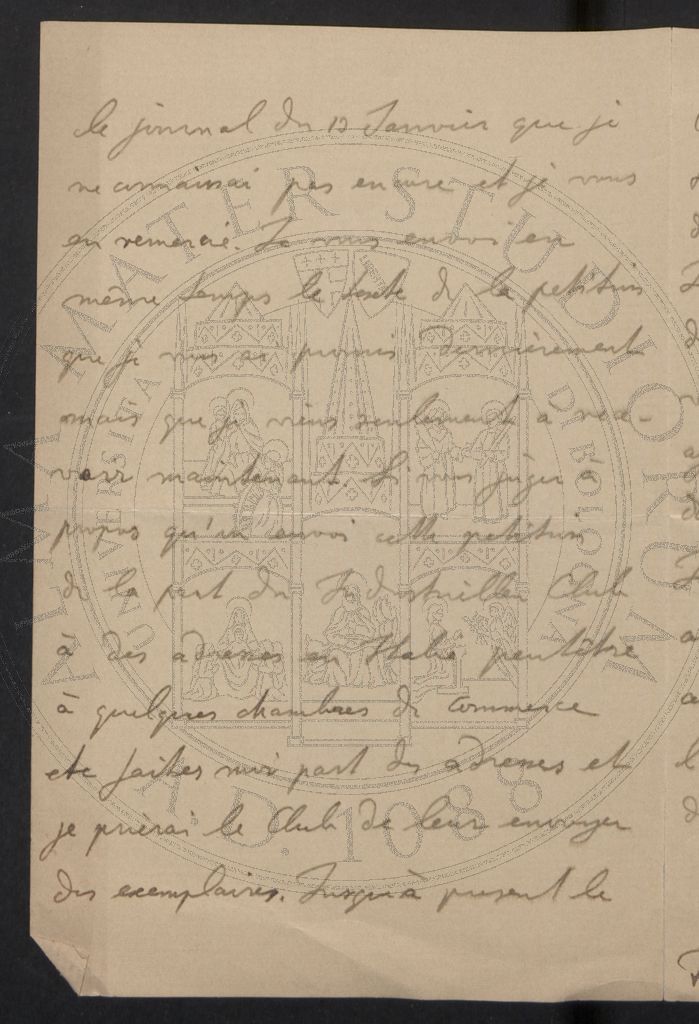 le journal du 12 Janvier que je
ne connaissai pas encore et je vous
en remercie. Je vous envoi en
même temps le texte de la petition
que je vous ai promis dernièrement
mais que je viens seulement à rece-
voir maintenant. Si vous juger à
propos qu'on envoi cette petition
de la part du Industrieller Club
à des adresses en Italie peutêtre
à quelques chambres de commerce
etc faites moi part des adresses et
je prierai le Club de leur envoyer
des exemplaires. Jusqu'à present le
ALMA MATER STUDIORUM
UNIVERSITÀ DI BOLOGNA
A.D. 1088